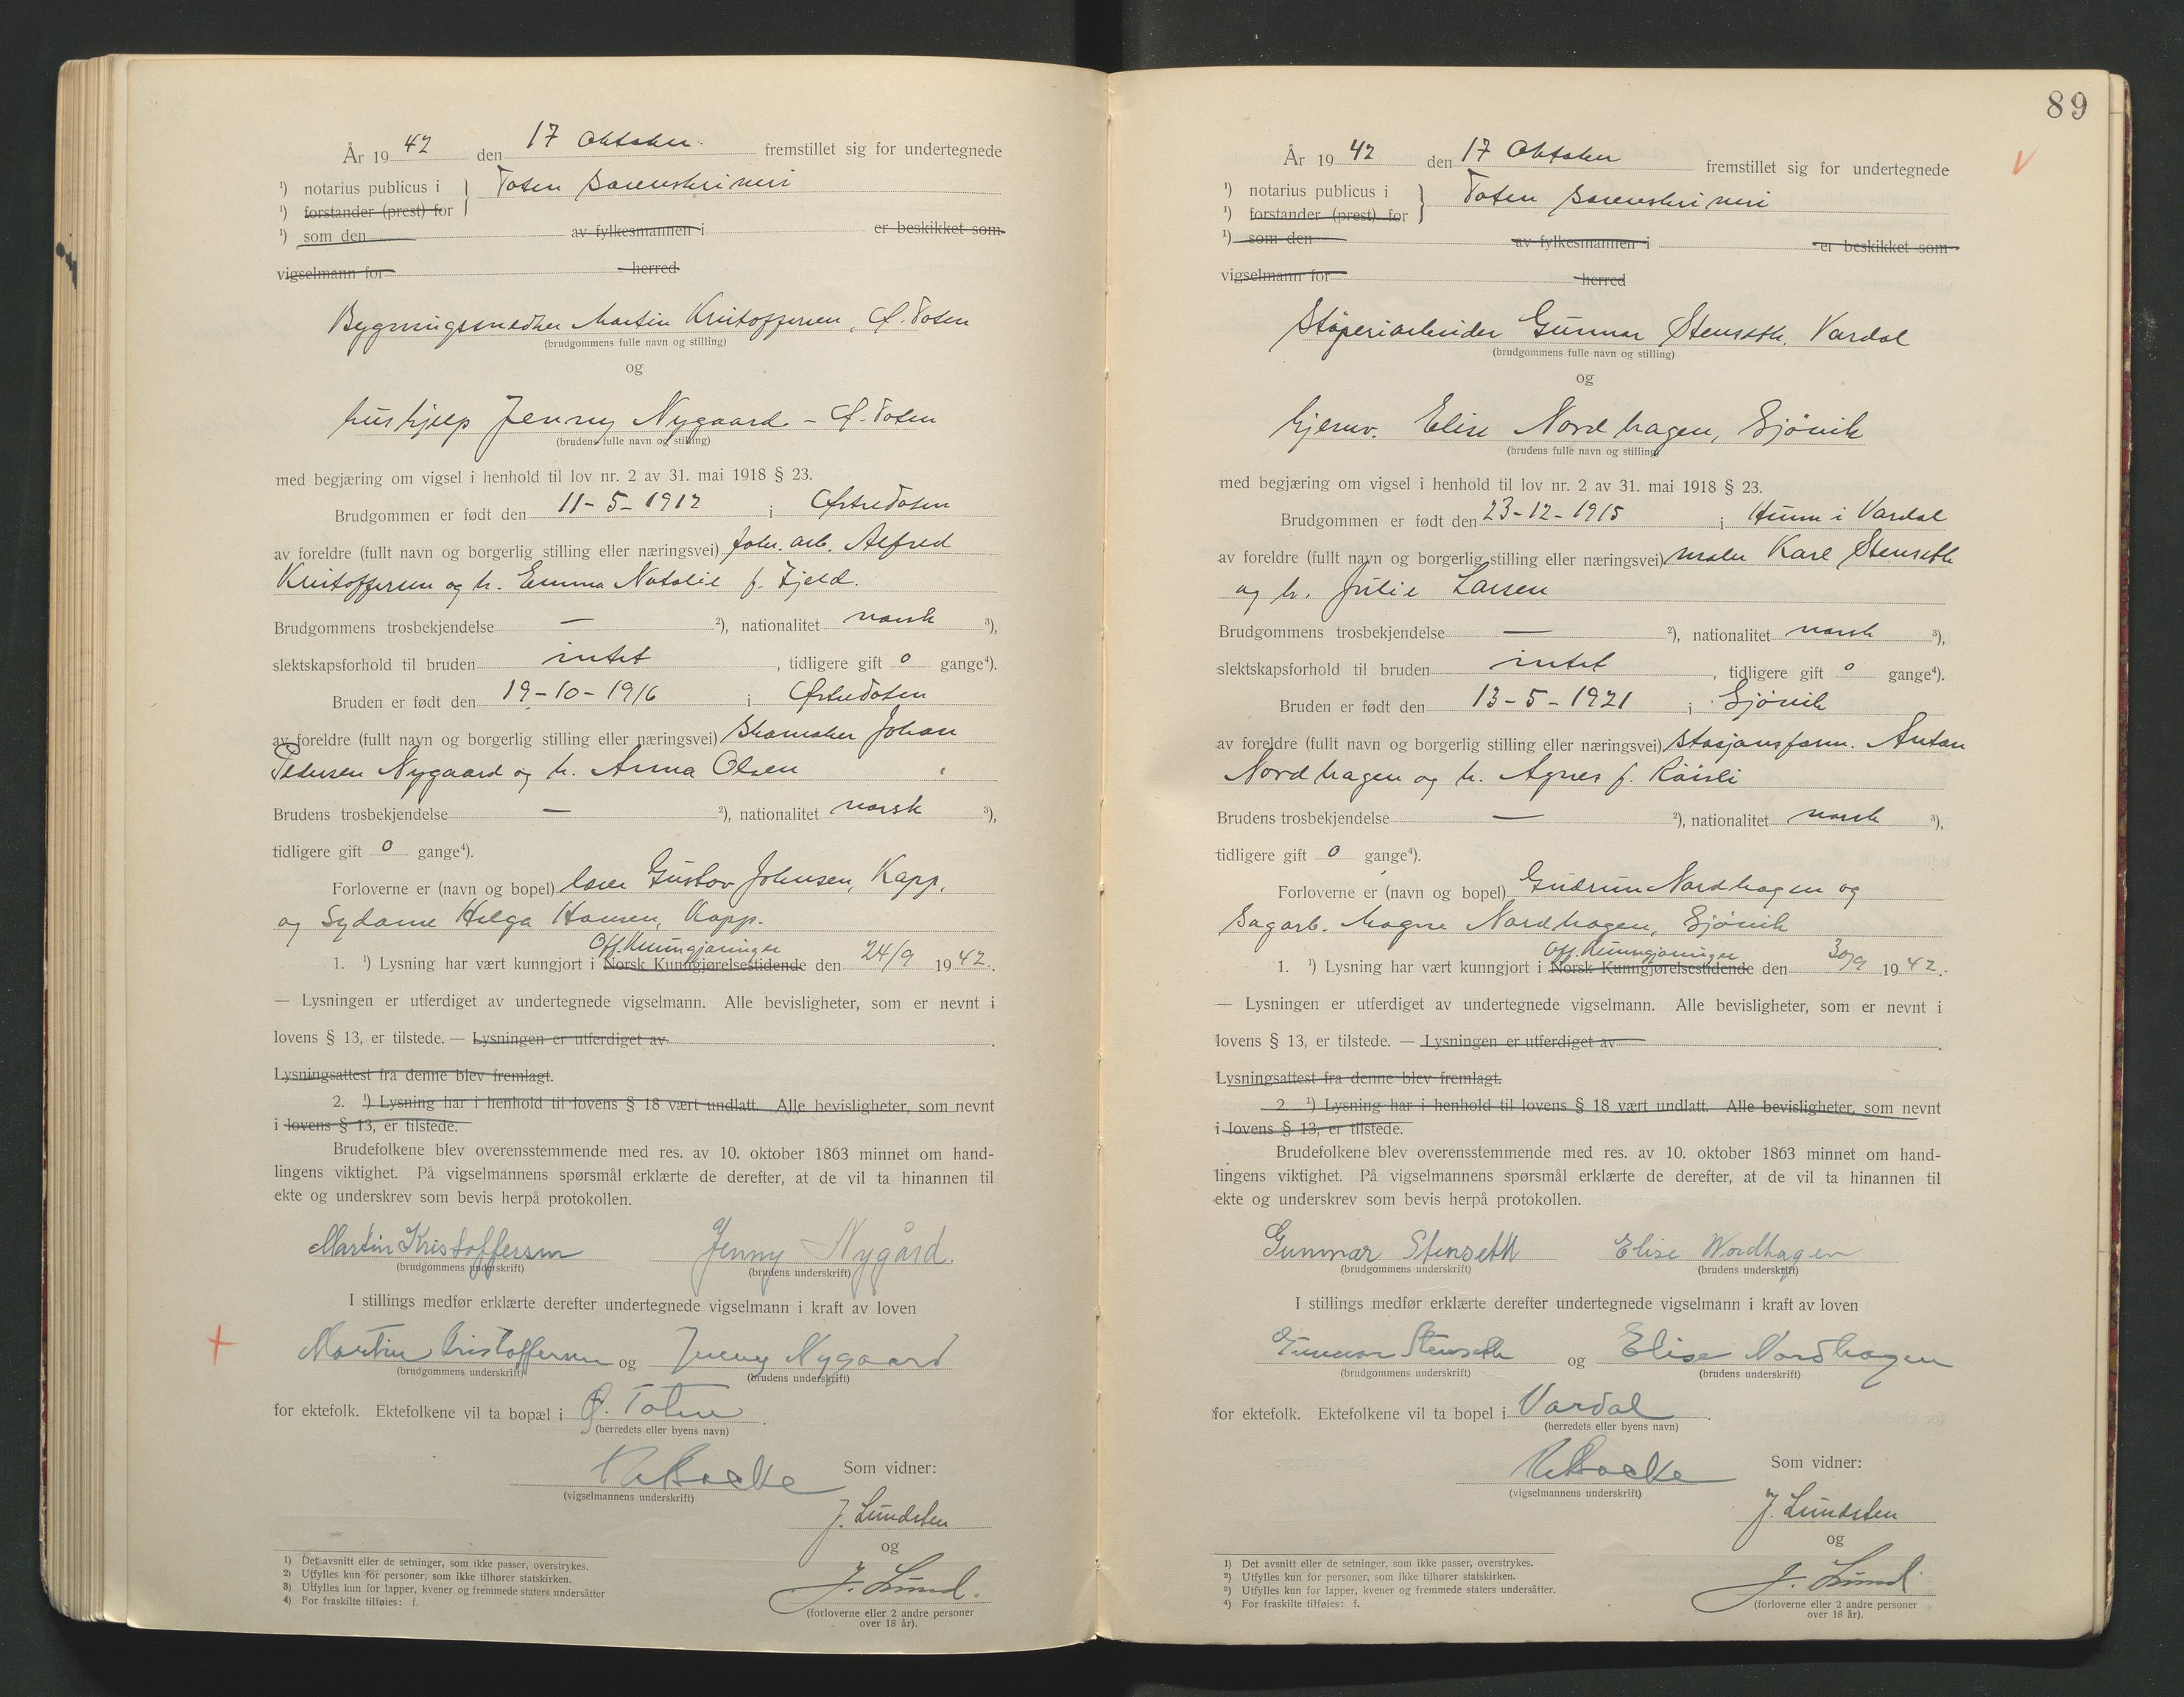 År 19 42 den 17 Oktober. fremstillet sig for undertegnede
¹) notarius publicus i } Toten sorenskriveri
¹) forstander (prest) for
¹) som den av fylkesmannen i er beskikket som
vigselmann for herred
Bygningssnedker Martin Kristoffersen, Ø. Toten
(brudgommens fulle navn og stilling)
og
hushjelp Jenny Nygaard - Ø. Toten
(brudens fulle navn og stilling)
med begjæring om vigsel i henhold til lov nr. 2 av 31. mai 1918 § 23.
Brudgommen er født den 11-5-1912 i Østre Toten
av foreldre (fullt navn og borgerlig stilling eller næringsvei) arb. Alfred
Kristoffersen og h. Emma Natalie f. Fjeld.
Brudgommens trosbekjendelse — ²), nationalitet norsk ³),
slektskapsforhold til bruden intet , tidligere gift 0 gange⁴).
Bruden er født den 19-10-1916 i Østre Toten
av foreldre (fullt navn og borgerlig stilling eller næringsvei) skomaker Johan
Pedersen Nygaard og h. Anna Olsen
Brudens trosbekjendelse — ²), nationalitet norsk ³),
tidligere gift 0 gange⁴).
Forloverne er (navn og bopel) Gustav Johnsen, Kapp,
og Sydame Helga Hansen, Kapp.
Off. Kunngjøringer
1. ¹) Lysning har vært kunngjort i Norsk Kunngjørelsestidende den 24/9 19 42.
— Lysningen er utferdiget av undertegnede vigselmann. Alle bevisligheter, som er nevnt i
lovens § 13, er tilstede. — Lysningen er utferdiget av .
Lysningsattest fra denne blev fremlagt.
2. ¹) Lysning har i henhold til lovens § 18 vært undlatt. Alle bevisligheter, som nevnt
i lovens § 13, er tilstede.
Brudefolkene blev overensstemmende med res. av 10. oktober 1863 minnet om hand-
lingens viktighet. På vigselmannens spørsmål erklærte de derefter, at de vil ta hinannen til
ekte og underskrev som bevis herpå protokollen.
Martin Kristoffersen Jenny Nygård.
(brudgommens underskrift) (brudens underskrift)
I stillings medfør erklærte derefter undertegnede vigselmann i kraft av loven
Martin Kristoffersen og Jenny Nygaard
(brudgommens underskrift) (brudens underskrift)
for ektefolk. Ektefolkene vil ta bopæl i Ø. Toten .
(herredets eller byens navn)
Som vidner:
(vigselmannens underskrift)
J. Lundsten
og
J. Lund.
(forloverne eller 2 andre personer
over 18 år).
¹) Det avsnitt eller de setninger, som ikke passer, overstrykes.
²) Utfylles kun for personer, som ikke tilhører statskirken.
³) Utfylles kun for lapper, kvener og fremmede staters undersåtter
⁴) For fraskilte tilføies: f.
89
År 19 42 den 17 Oktober fremstillet sig for undertegnede
¹) notarius publicus i } Toten sorenskriveri
¹) forstander (prest) for
¹) som den av fylkesmannen i er beskikket som
vigselmann for herred
Støperiarbeider Gunnar Stenseth. Vardal
(brudgommens fulle navn og stilling)
og
hjemv. Elise Nordhagen, Gjövik
(brudens fulle navn og stilling)
med begjæring om vigsel i henhold til lov nr. 2 av 31. mai 1918 § 23.
Brudgommen er født den 23-12-1915 i Hunn i Vardal
av foreldre (fullt navn og borgerlig stilling eller næringsvei) maler Karl Stenseth
og h. Julie Larsen
Brudgommens trosbekjendelse — ²), nationalitet norsk ³),
slektskapsforhold til bruden intet , tidligere gift 0 gange⁴).
Bruden er født den 13-5-1921 i Gjövik
av foreldre (fullt navn og borgerlig stilling eller næringsvei) stasjonsform. Anton
Nordhagen og h. Agnes f. Röisli
Brudens trosbekjendelse — ²), nationalitet norsk ³),
tidligere gift 0 gange⁴).
Forloverne er (navn og bopel) Gudrun Nordhagen og
Sagarb. Magne Nordhagen, Gjövik
Off. Kunngjøringer
1. ¹) Lysning har vært kunngjort i Norsk Kunngjørelsestidende den 30/9 19 42.
— Lysningen er utferdiget av undertegnede vigselmann. Alle bevisligheter, som er nevnt i
lovens § 13, er tilstede. — Lysningen er utferdiget av .
Lysningsattest fra denne blev fremlagt.
2. ¹) Lysning har i henhold til lovens § 18 vært undlatt. Alle bevisligheter, som nevnt
i lovens § 13, er tilstede.
Brudefolkene blev overensstemmende med res. av 10. oktober 1863 minnet om hand-
lingens viktighet. På vigselmannens spørsmål erklærte de derefter, at de vil ta hinannen til
ekte og underskrev som bevis herpå protokollen.
Gunnar Stenseth Elise Nordhagen
(brudgommens underskrift) (brudens underskrift)
I stillings medfør erklærte derefter undertegnede vigselmann i kraft av loven
Gunnar Stenseth og Elise Nordhagen
(brudgommens underskrift) (brudens underskrift)
for ektefolk. Ektefolkene vil ta bopel i Vardal .
(herredets eller byens navn)
Som vidner:
(vigselmannens underskrift)
J. Lundsten
og
J. Lund
(forloverne eller 2 andre personer
over 18 år).
¹) Det avsnitt eller de setninger, som ikke passer, overstrykes.
²) Utfylles kun for personer, som ikke tilhører statskirken.
³) Utfylles kun for lapper, kvener og fremmede staters undersåtter.
⁴) For fraskilte tilføies: f.